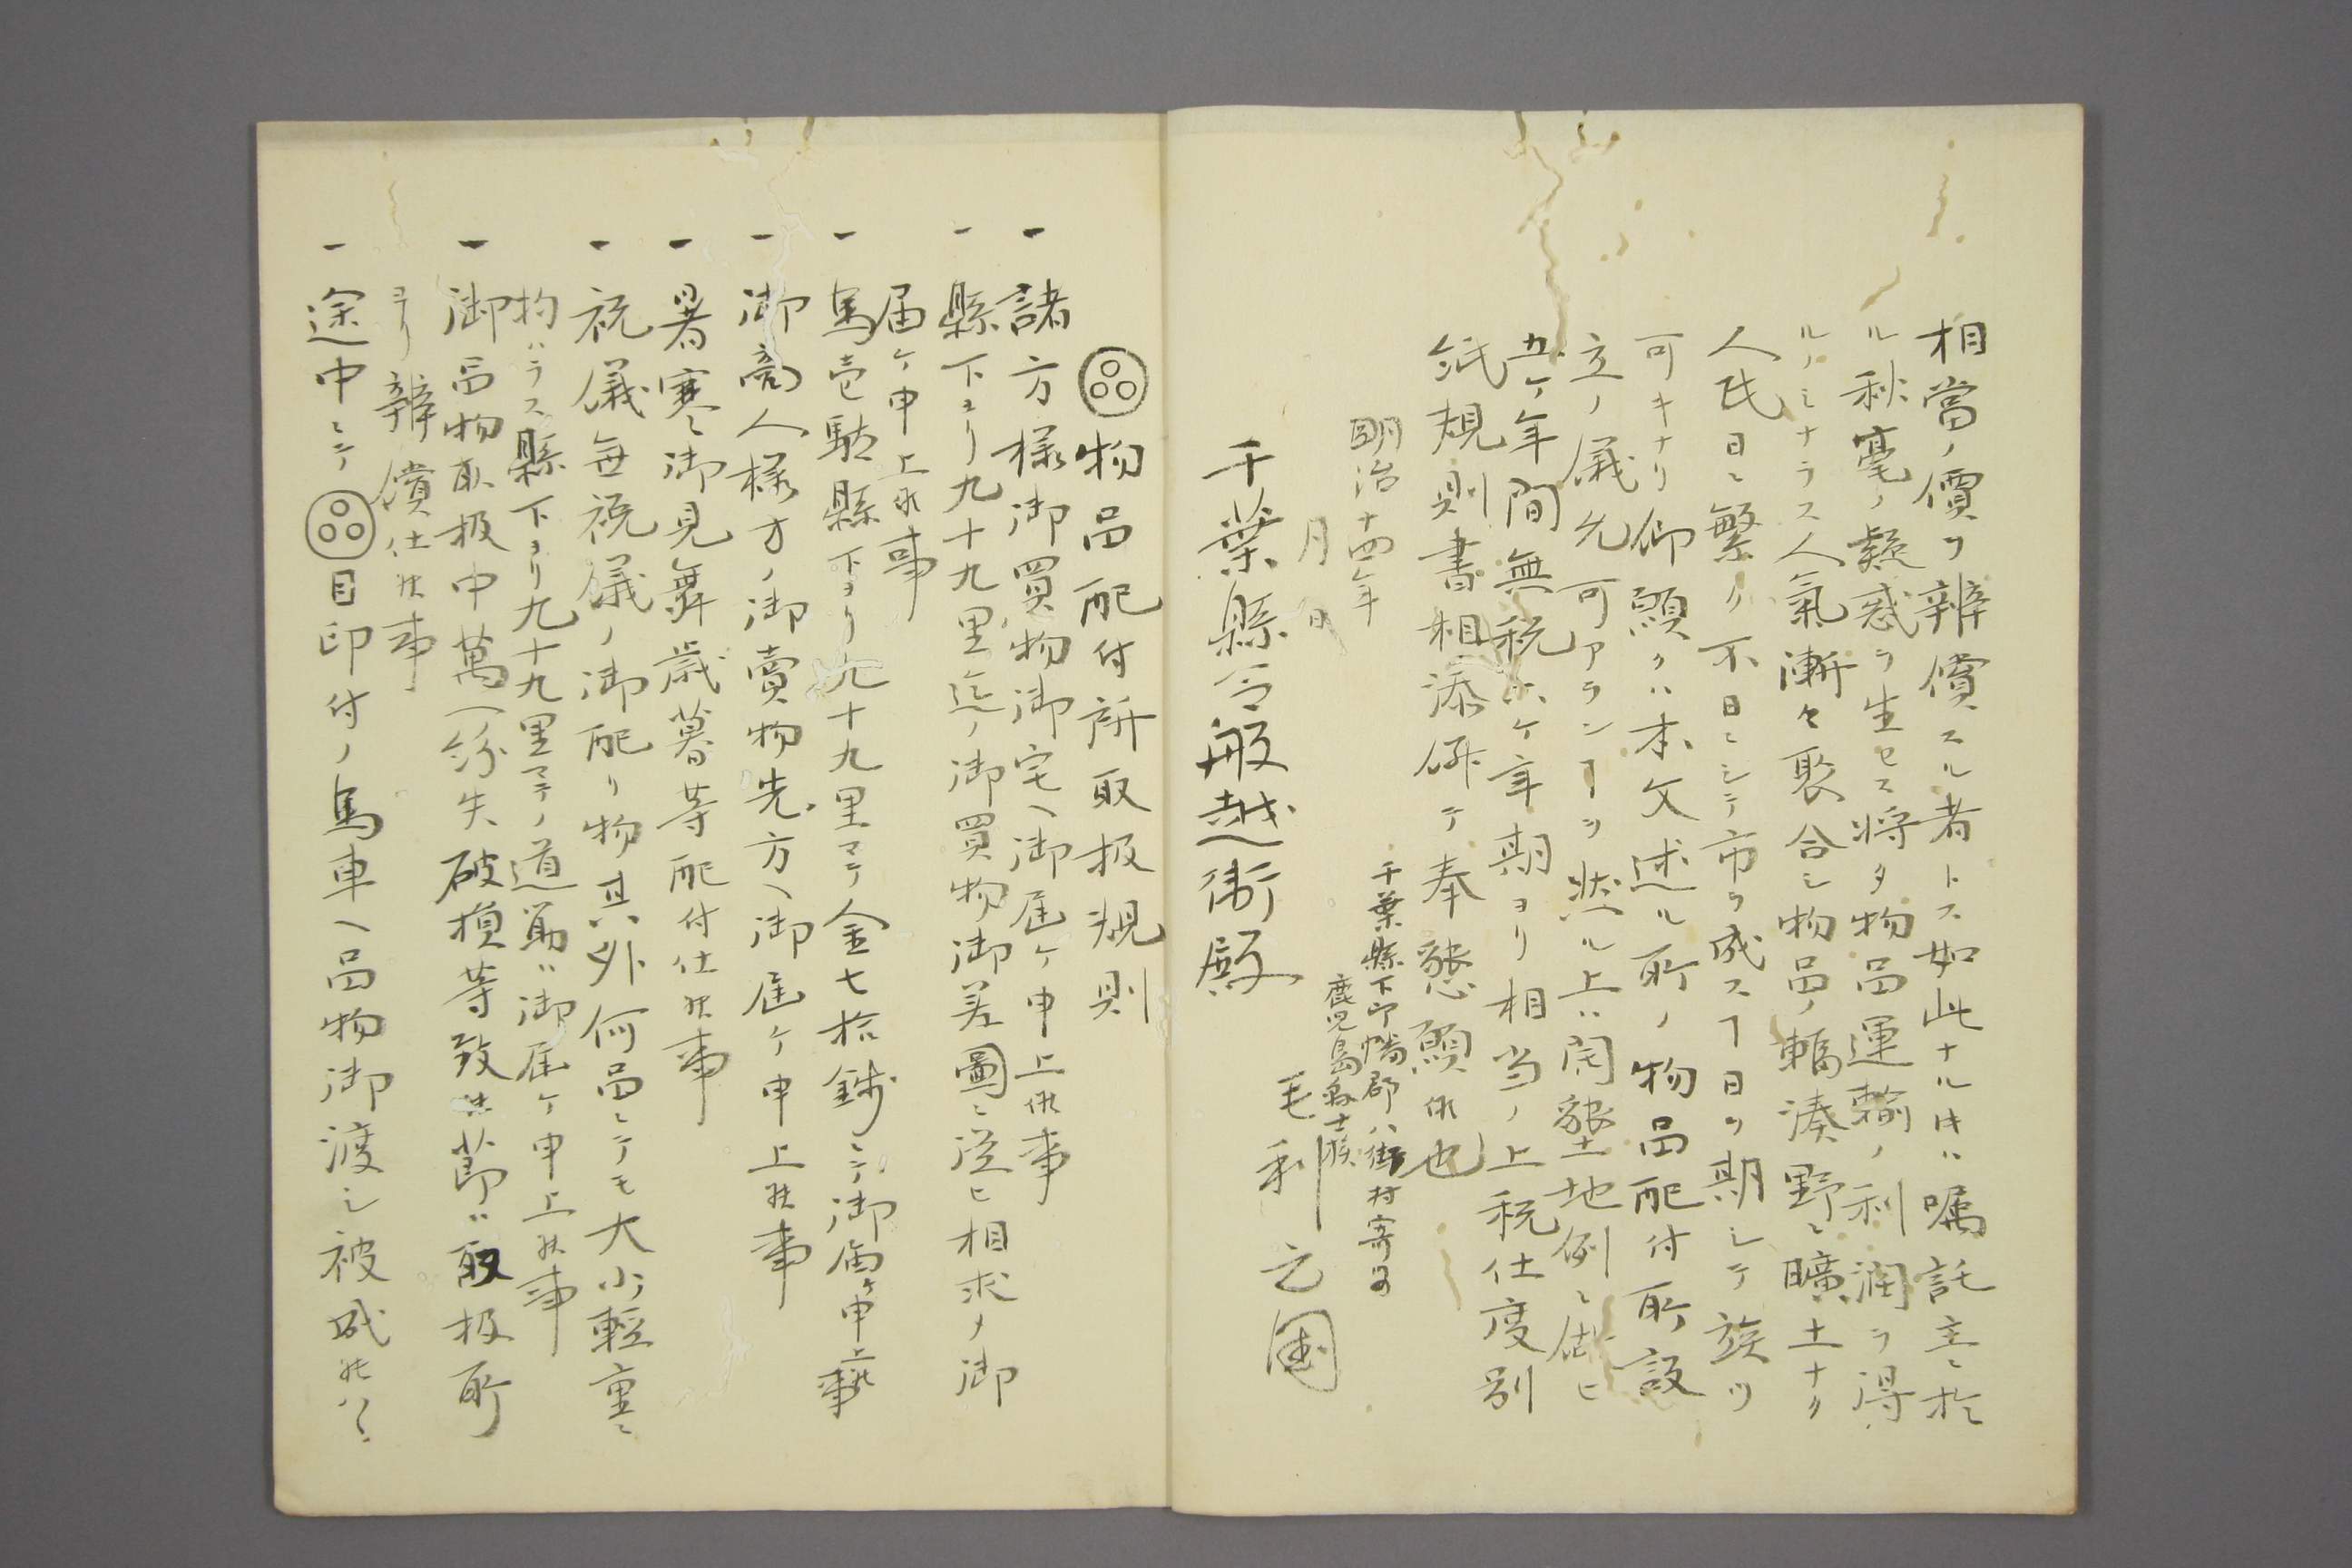 相當ノ價ヲ辨償スル者トス如此ナルキハ嘱託主ニ於
ル秋毫ノ疑惑ヲ生セス将タ物品運輸ノ利潤ヲ得
ルノミナラス人氣漸々聚合シ物品ノ輻湊野ニ曠土ナク
人民日ニ繁ク不日ニシテ市ヲ成スヿ日ヲ期シテ族ツ
可キナリ仰願クハ本文述ル所ノ物品配付所設
立ノ儀允可アランヿヲ然ル上ハ開墾土地例ニ倣ヒ
五ケ年間無税六ケ年期ヨリ相当ノ上税仕度別
紙規則書相添併テ奉懇願候也
千葉縣下印幡郡八街村寄留
鹿児島縣士族
明治十四年
月 日
毛利元国
千葉縣令船越衛殿
物品配付所取扱規則
一 諸方様御買物御宅ヘ御届ケ申上候事
一 縣下ヨリ九十九里迄ノ御買物御差圖ニ從ヒ相求メ御
届ケ申上候事
一 馬壱駄縣下ヨリ九十九里マテ金七拾銭ニテ御届ケ申上候事
一 御商人様方ノ御賣物先方ヘ御届ケ申上候事
一 暑寒ニ御見舞歳暮等配付仕候事
一 祝儀無祝儀ノ御配リ物其外何品ニテモ大小輕重ニ
拘ハラス縣下ヨリ九十九里マテノ道筋ハ御届ケ申上候事
一 御品物取扱中萬一紛失破損等致候節ハ取扱所
ヨリ辨償仕候事
一 途中ニテ目印付ノ馬車ヘ品物御渡シ被成候ハヽ